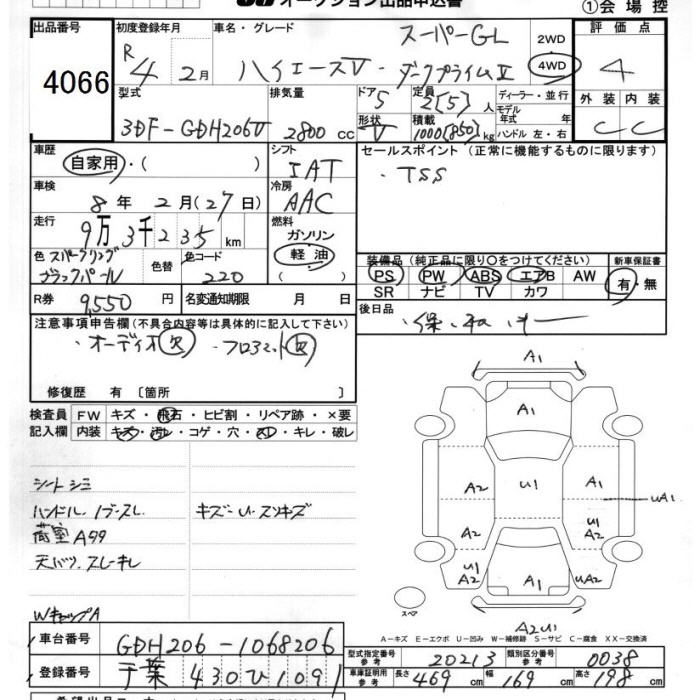 オークション出品申込書
①会場控
出品番号
4066
初度登録年月
R 4 2月
車名・グレード
スーパーGL
ハイエースV・ダークプライムⅡ
2WD
4WD
評価点
4
外装 内装
C C
型式
3DF-GDH206V
排気量
2800 cc
ドア
5
形状
V
定員
2[5]人
積載
1000[850]kg
ディーラー・並行
モデル年式 年
ハンドル 左・右
車歴
自家用・( )
シフト
IAT
車検
8年2月(27日)
冷房
AAC
走行
9万3千235km
燃料
ガソリン
軽油
( )
色 スパークリングブラックパール
色替
色コード
220
R券
9,550円
名変通知期限 月 日
セールスポイント(正常に機能するものに限ります)
・TSS
装備品(純正品に限り〇をつけてください)
PS PW ABS エアB AW
SR ナビ TV カワ
新車保証書
有・無
後日品
・保・取・
注意事項申告欄(不具合内容等は具体的に記入して下さい)
・オーディオ欠 ・フロアマット欠
修復歴 有〔箇所 〕
検査員記入欄
FW キズ・飛石・ヒビ割・リペア跡・×要
内装 キズ・汚レ・コゲ・穴・スレ・キレ・破レ
シートシミ
ハンドル ノブスレ
荷室A44
天バリ、スレキレ
WキャップA
キズ-U、スリキズ
A1
A1
A2
U1
A1
UA1
A2
U1
A2
U1
A2
A1
UA2
スペア
A2U1
A-キズ E-エクボ U-凹み W-補修跡 S-サビ C-腐食 XX-交換済
車台番号
GDH206-1068206
登録番号
千葉430ひ1091
型式指定番号 参考
20213
類別区分番号 参考
0038
車庫証明用 参考
長さ 469cm
幅 169cm
高さ 198cm